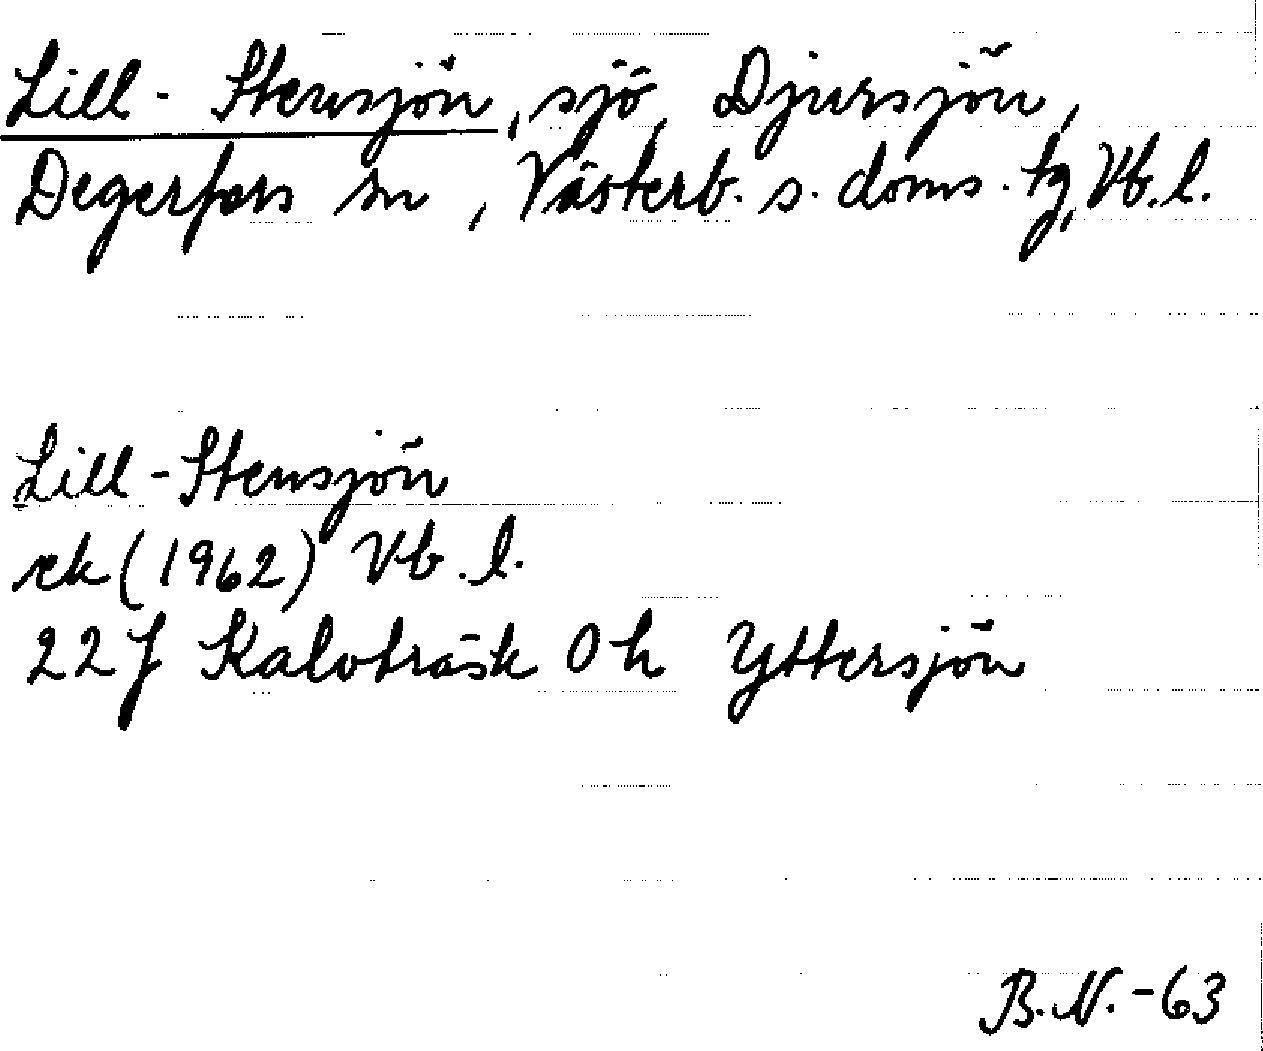 Lill-Stensjön, sjö, Djursjön,
Degerfors sn, Västerb. s. doms. tg, Vb. l.
Lill-Stensjön
ek (1962) Vb. l.
22J Kalvträsk 0h Yttersjön
B.N.-63